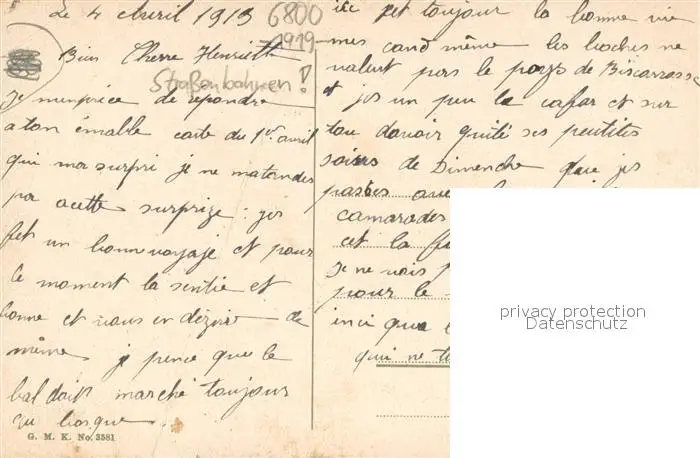 Le 4 Avril 1919
6800
1919
Bien Cherre Henriette
Straßenbahnen!
Je m'enprèce de repondre
a ton émable carte du 1er avril
qui ma surpri je ne matandes
pas acette surprize: jes
fet un bonne voyaje et pour
le moment la sentie et
bonne et vous en dézire de
même je pence que le
bal doit marché toujour
au bosque
G. M. K. No. 3581
ici fet toujour la bonne vie
mes cand même les boches ne
valent pas le pays de Biscarrosse
et jes un peu le cafar et sur
tou davoir quité ses peutites
soires de Dimenche que jes
pasées avec
camarades
cet la
Je ne vois
pour le
inci que
qui ne
privacy protection
Datenschutz